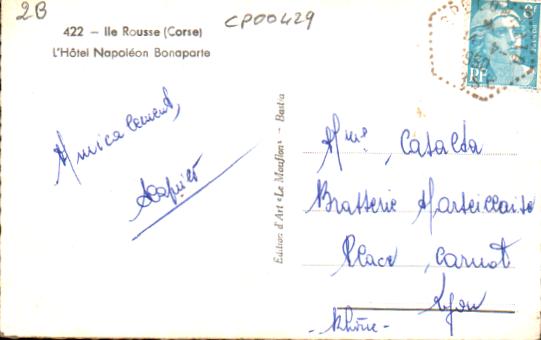 2B
CP00429
422 – Ile Rousse (Corse)
L'Hôtel Napoléon Bonaparte
Amicalement,
Edition d'Art «Le Mouflon» - Bastia
Mme, Catalda
Brasserie Marseillaise
Place, Carnot
Lyon
- Rhône -
RF